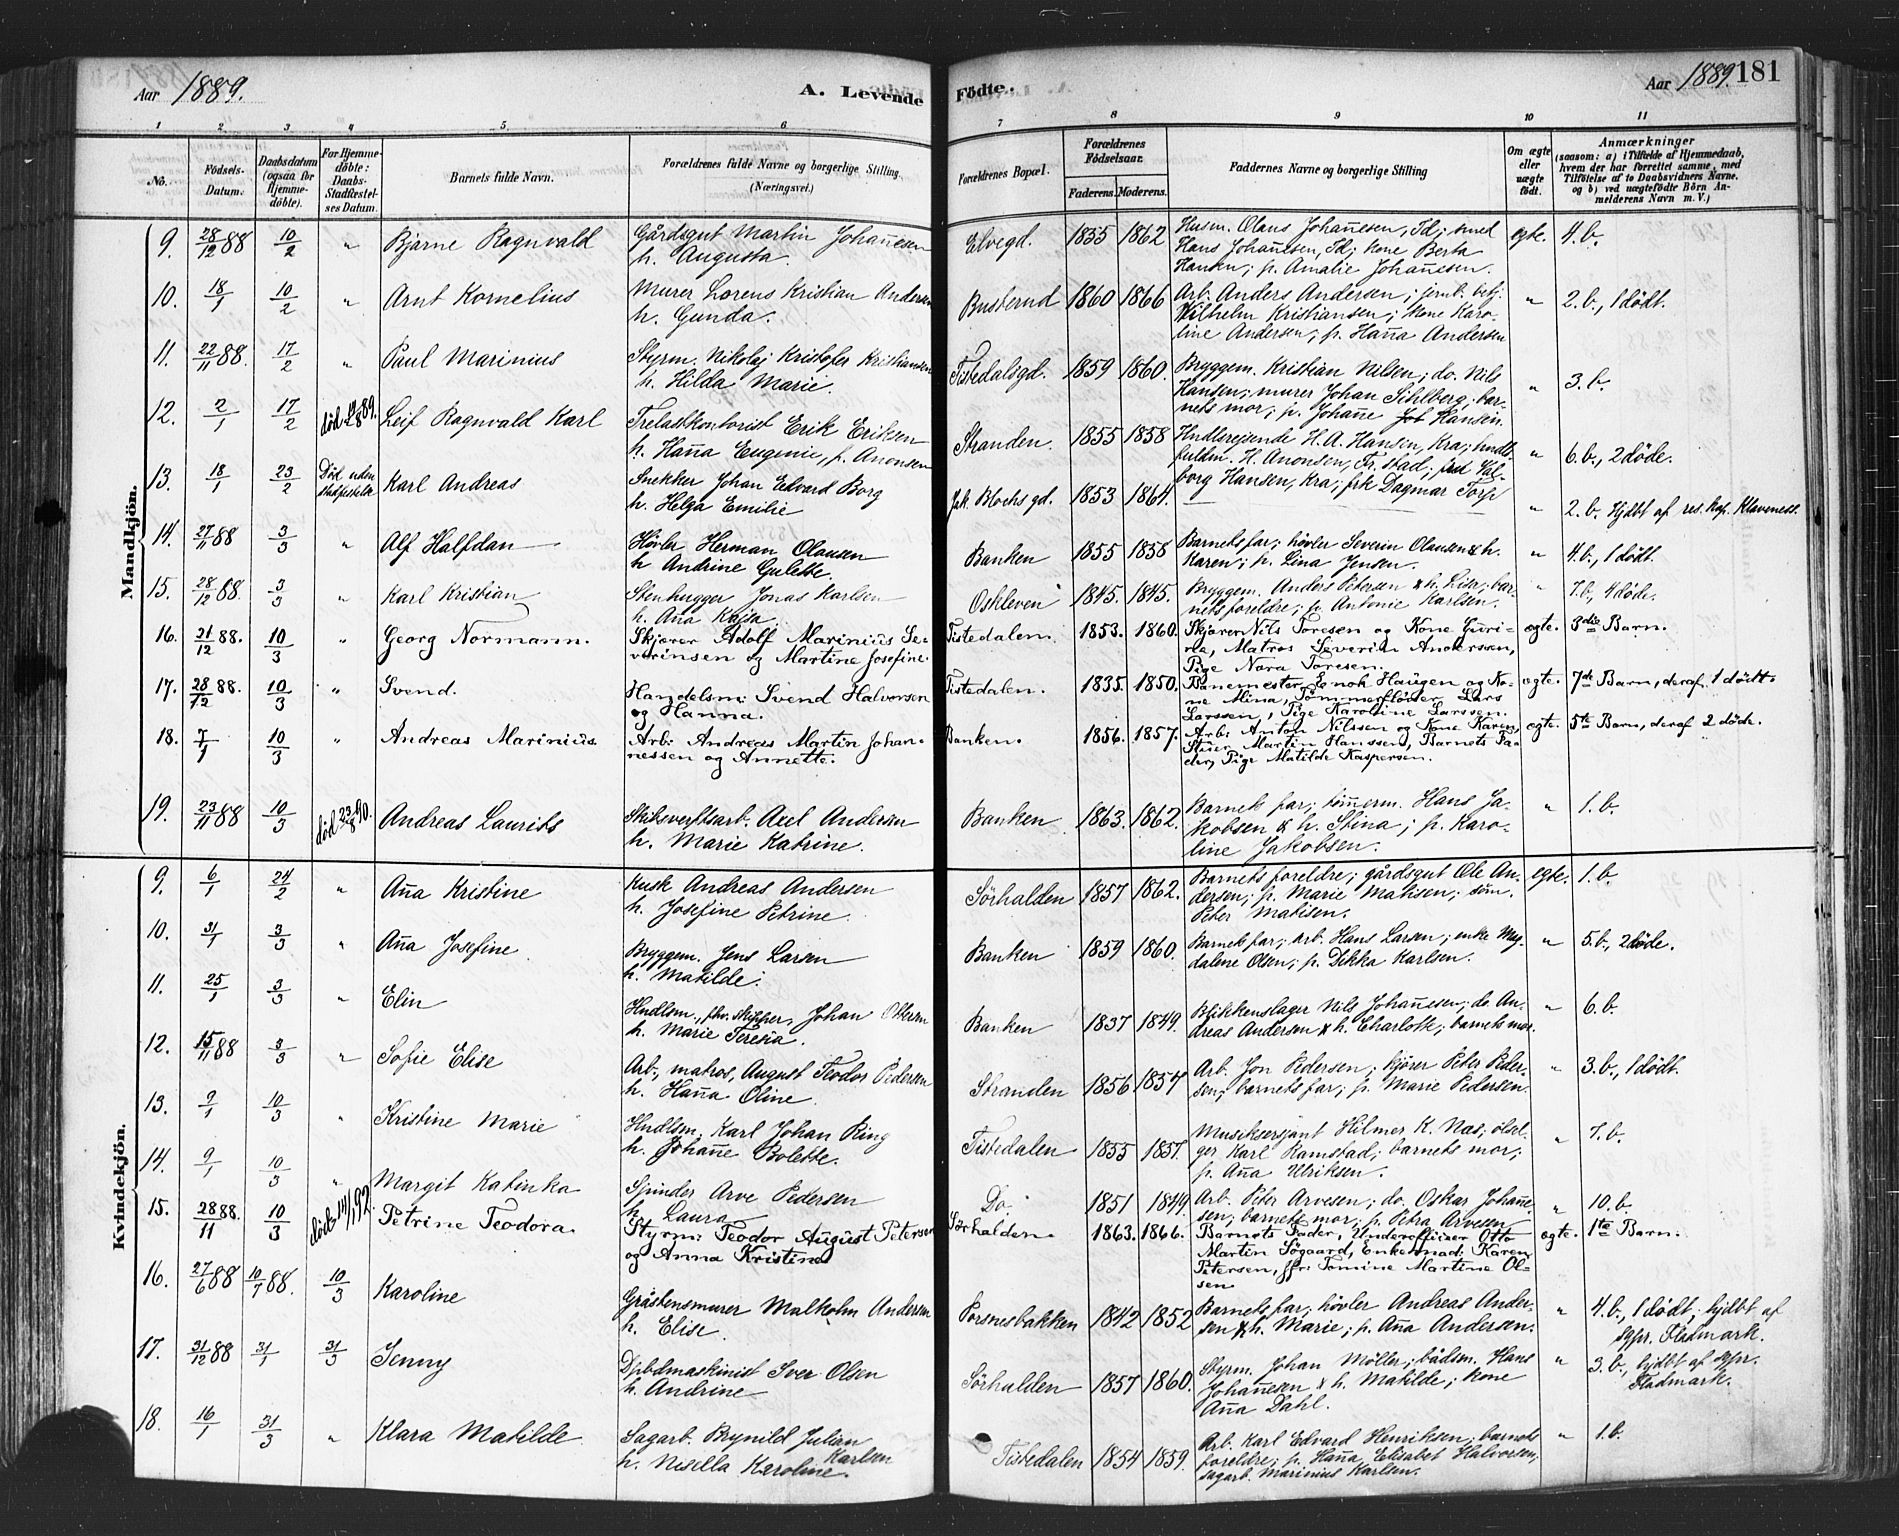 Aar 1889.
A. Levende
Födte.
Aar 1889. 181
1 2 3 4 5 6 7 8 9 10 11
No.
Födsels-Datum.
Daabsdatum (ogsaa for Hjemme-döbte).
For Hjemme-döbte: Daabs-Stadfæstel-ses Datum.
Barnets fulde Navn.
Forældrenes fulde Navne og borgerlige Stilling (Næringsvei.)
Forældrenes Bopæl.
Forældrenes Födselsaar.
Faderens. Moderens.
Faddernes Navne og borgerlige Stilling
Om ægte eller uægte födt.
Anmærkninger
(saasom: a) i Tilfælde af Hjemmedaab, hvem der har forrettet samme, med Tilföielse af to Daabsvidners Navne. og b) ved uægtefödte Börn An-melderens Navn m. V.)
Mandkjön.
9. 28/12 88 10/2 " Bjarne Ragnvald Gårdsgut Martin Johan̄esen h. Augusta. Elvegd. 1855 1862 Husm. Olaus Johan̄esen, Id; smed Hans Johan̄esen, Id; kone Berta Hansen; p. Amalie Johan̄esen. egte. 4. b.
10. 18/1 10/2 " Arnt Kornelius Murer Lorens Kristian Andersen h. Gunda. Busterud 1860 1866 Arb. Anders Andersen; jernb. betj. Vilhelm Kristiansen; kone Karoline Andersen; p. Han̄a Andersen " 2. b., 1 dödt.
11. 22/11 88. 17/2 " Paul Marinius Styrm. Nikolaj Kristofer Kristiansen h. Hilda Marie. Tistedalsgd. 1859 1860. Bryggem. Kristian Nilsen; do. Nils Hansen; murer Johan Sihlberg; barnets mor; p. Johan̄e Hansen. " 3. b.
12. 2/1 17/2 död 89. Leif Ragnvald Karl Trelastkontorist Erik Eriksen h. Han̄a Eugenie, f. Anonsen Stranden 1855 1858 Hndlsrejsende H. A. Hansen, Kra; hndlsfuldm. H. Anonsen, Fr.stad; Valborg Hansen, Kra; frk Dagmar Torp " 6. b., 2 döde.
13. 18/1 23/2 Död uden stadfestelse Karl Andreas Snekker Johan Edvard Borg h. Helga Emilie Jak. Blochs gd. 1853 1864. — " 2. b. Hjdbt af res. kap. Klaveness.
14. 27/11 88 3/3 " Alf Halfdan Hövler Herman Olausen h Andrine Gulette. Banken 1855 1858 Barnets far; hövler Severin Olausen & h. Karen; p. Lina Jensen. " 4. b., 1 dödt.
15. 28/12 88. 3/3 " Karl Kristian Stenhugger Jonas Karlsen h. An̄a Kajsa. Oskleven 1845. 1845. Bryggem. Anders Petersen & h. Lisa; barnets foreldre; p. Antonie Karlsen. " 7. b., 4 döde.
16. 21/12 88. 10/3 " Georg Normann. Skjærer Adolf Marinius Severinsen og Martine Josefine. Tistedalen. 1853. 1860. Skjærer Nils Toresen og Kone Gurine, Matros Severin Anderssen, Pige Nora Toresen. ægte. 3die Barn.
17. 28/12 88. 10/3 " Svend. Handelsm: Svend Halvorsen og Hanna. Tistedalen. 1835. 1850. Banemester Enok Haugen og Kone Mina, Tömmerflöder Lars Larssen, Pige Karoline Larssen. ægte. 7de Barn, deraf 1 dödt.
18. 7/1 10/3 " Andreas Marinius. Arb: Andreas Martin Johannessen og Annette. Banken. 1856. 1857. Arb: Anton Nilssen og Kone Karen, Stuer Martin Hanssen, Barnets Fader, Pige Matilde Kaspersen. ægte. 5te Barn, deraf 2 døde.
19. 23/11 88 10/3 död 23/8 90. Andreas Laurits Skibsverftsarb. Axel Andersen h. Marie Katrine. Banken 1863. 1862. Barnets far; töm̄erm. Hans Jakobsen & h. Stina; p. Karoline Jakobsen. " 1. b.
Kvindekjön.
9. 6/1 24/2 " An̄a Kristine Kusk Andreas Andersen h. Josefine Petrine. Sörhalden 1857 1862. Barnets foreldre; gårdsgut Ole Andersen; p. Marie Matisen; söm. Peter Matisen. egte. 1. b.
10. 31/1 3/3 " An̄a Josefine. Bryggem. Jens Larsen h. Matilde. Banken 1859 1860. Barnets far; arb. Hans Larsen; enke Magdalene Olsen; p. Dikka Karlsen. " 5. b., 2 döde.
11. 25/1 3/3 " Elin Hndlsm., fhv. skipper, Johan Ottersen h. Marie Teresia. Banken 1837 1849. Blikkenslager Nils Johan̄esen; do. Andreas Andersen & h. Charlotte; barnets mor. " 6. b.
12. 15/11 88 3/3 " Sofie Elise Arb., matros, August Teodor Pedersen h. Han̄a Oline. Stranden 1856 1857 Arb. Jon Pedersen; kjörer Peter Pedersen; barnets far; p. Marie Pedersen. " 3. b., 1 dödt.
13. 9/1 10/3 " Kristine Marie Hndlsm. Karl Johan Ring h. Johan̄e Bolette. Tistedalen 1855 1857. Musiksersjant Hilmer K. Nas; ölselger Karl Ramstad; barnets mor; p. An̄a Ulriksen. " 7. b.
14. 9/1 10/3 " Margit Katinka Spinder Arve Pedersen h. Laura Do. 1851 1849. Arb. Peter Arvesen; do. Oskar Johan̄esen; barnets mor; p. Petra Arvesen " 10. b.
15. 28/11 88. 10/3 död 14/1 92. Petrine Teodora. Styrm: Teodor August Petersen og Anna Kristine Sörhalden. 1863. 1866. Barnets Fader, Underofficier Otto Martin Sögaard, Enkemad: Karen Petersen, ffr: Tomine Martine Olsen. ægte. 1te Barn.
16. 27/6 88 10/7 88. 10/3 Karoline Gråstensmurer Malkolm Andersen h. Elise. Porsnesbakken 1842 1852 Barnets far; hövler Andreas Andersen & h. Marie; p. An̄a Andersen. " 4. b., 1 dödt; hjdbt af sgpr. Fladmark.
17. 31/12 88 31/1 31/3 Jenny Dpbdmaskinist Iver Olsen h. Andrine Sörhalden 1857 1860. Styrm. Johan Möller; bådsm. Hans Johan̄esen & h. Matilde; kone An̄a Dahl. " 3. b., hjdbt af sgpr. Fladmark.
18. 16/1 31/3 " Klara Matilde Sagarb. Brynild Julian Karlsen h. Nisilla Karoline. Tistedalen 1854 1859. Arb. Karl Edvard Henriksen; barnets foreldre; p. Han̄a Elisabet Halvorsen; sagarb. Marinius Karlsen. " 1. b.